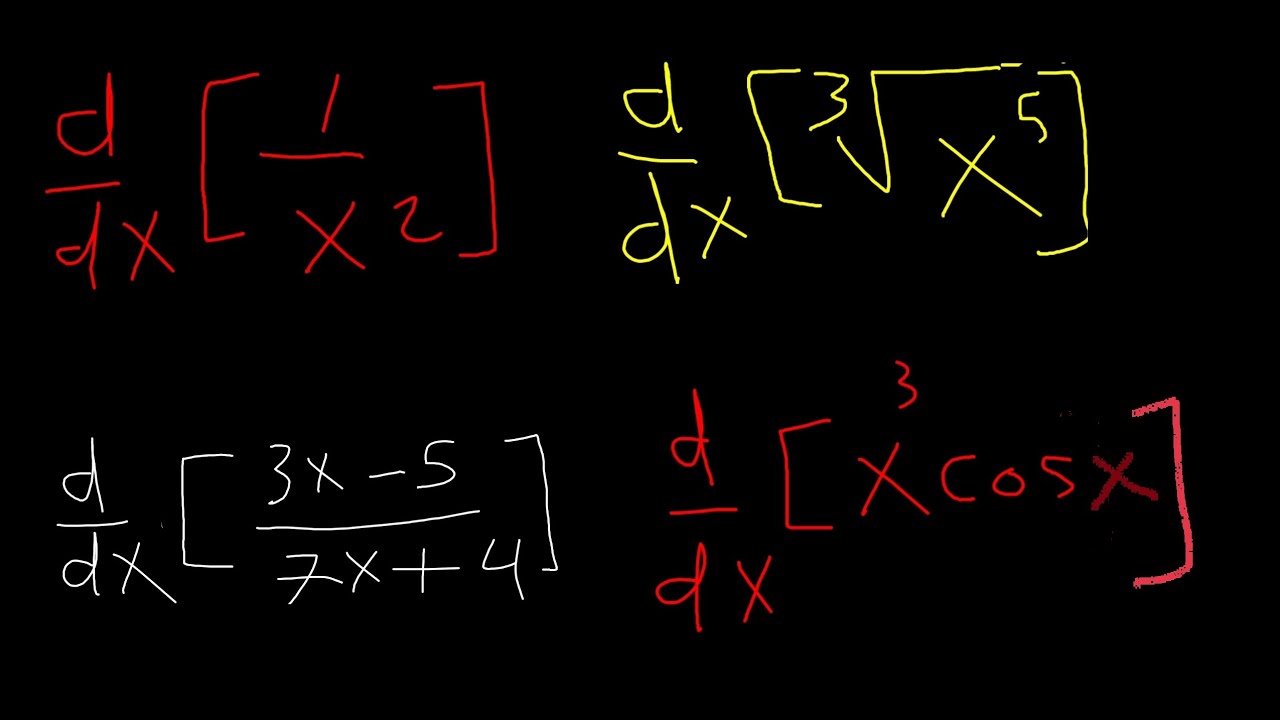 d/dx [1/x²]
d/dx [∛x⁵]
d/dx [3x-5/7x+4]
d/dx [x³cosx]